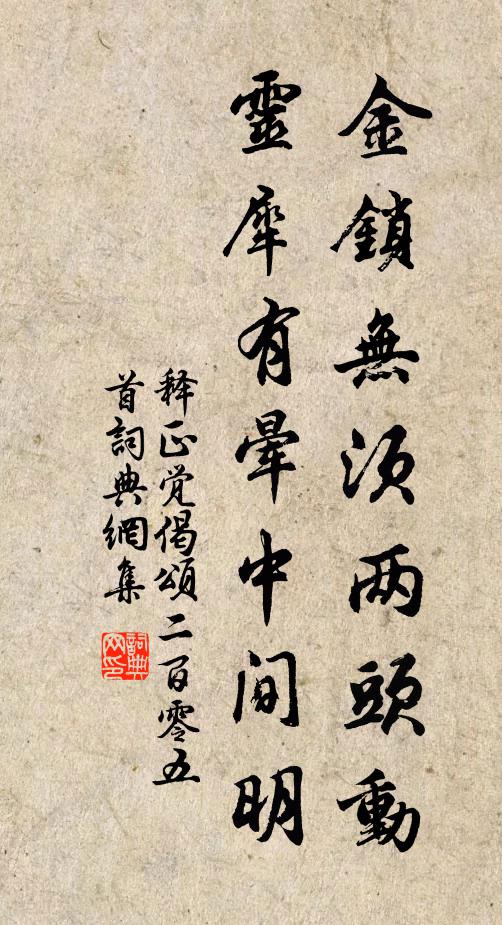 金鎖無須两頭動
靈犀有暈中間明
释正觉偈頌二百零五
首詞典網集
詞典
网印